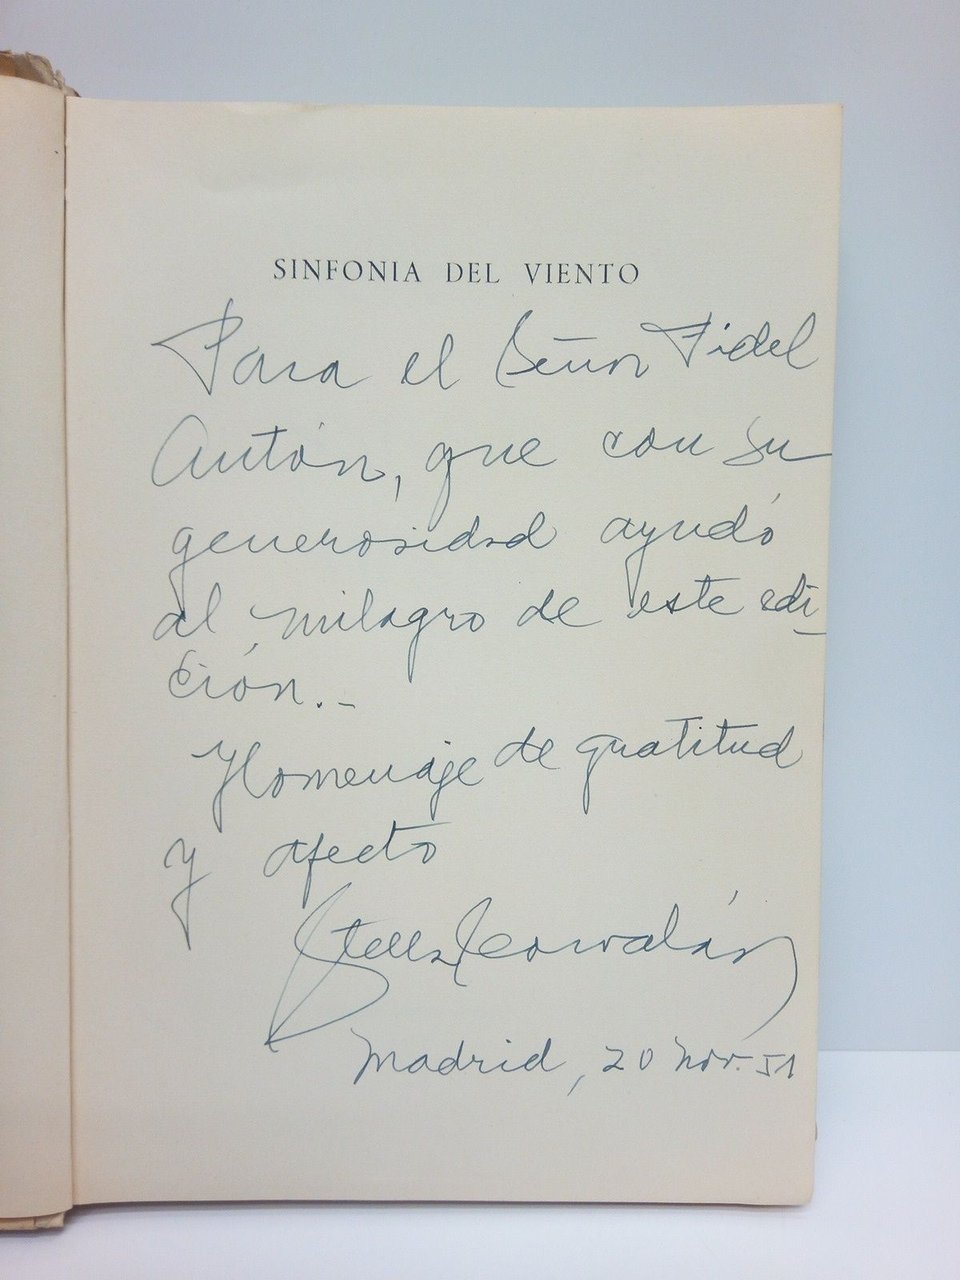 SINFONIA DEL VIENTO
Para el Señor Fidel
Antón, que con su
generosidad ayudó
al milagro de este edi-
ción.-
Homenaje de gratitud
y afecto
Stella Corvalán
Madrid, 20 Nov. 51